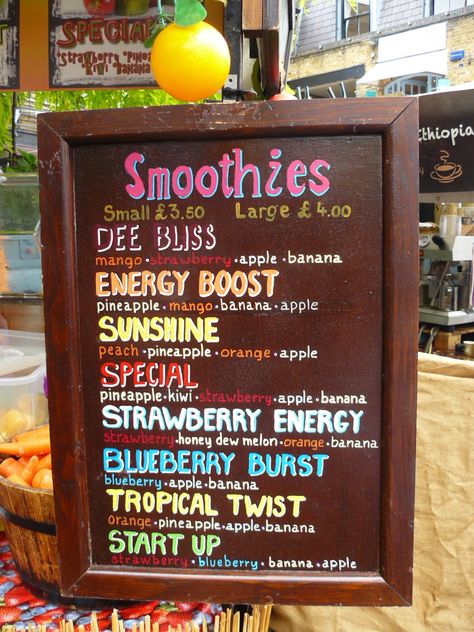 SPECIAL
"Strawberry Pine
Kiwi Banana"
Ethiopia
Smoothies
Small £3.50 Large £4.00
DEE BLISS
mango • strawberry • apple • banana
ENERGY BOOST
pineapple • mango • banana • apple
SUNSHINE
peach • pineapple • orange • apple
SPECIAL
pineapple • kiwi • strawberry • apple • banana
STRAWBERRY ENERGY
strawberry • honey dew melon • orange • banana
BLUEBERRY BURST
blueberry • apple • banana
TROPICAL TWIST
orange • pineapple • apple • banana
START UP
strawberry • blueberry • banana • apple